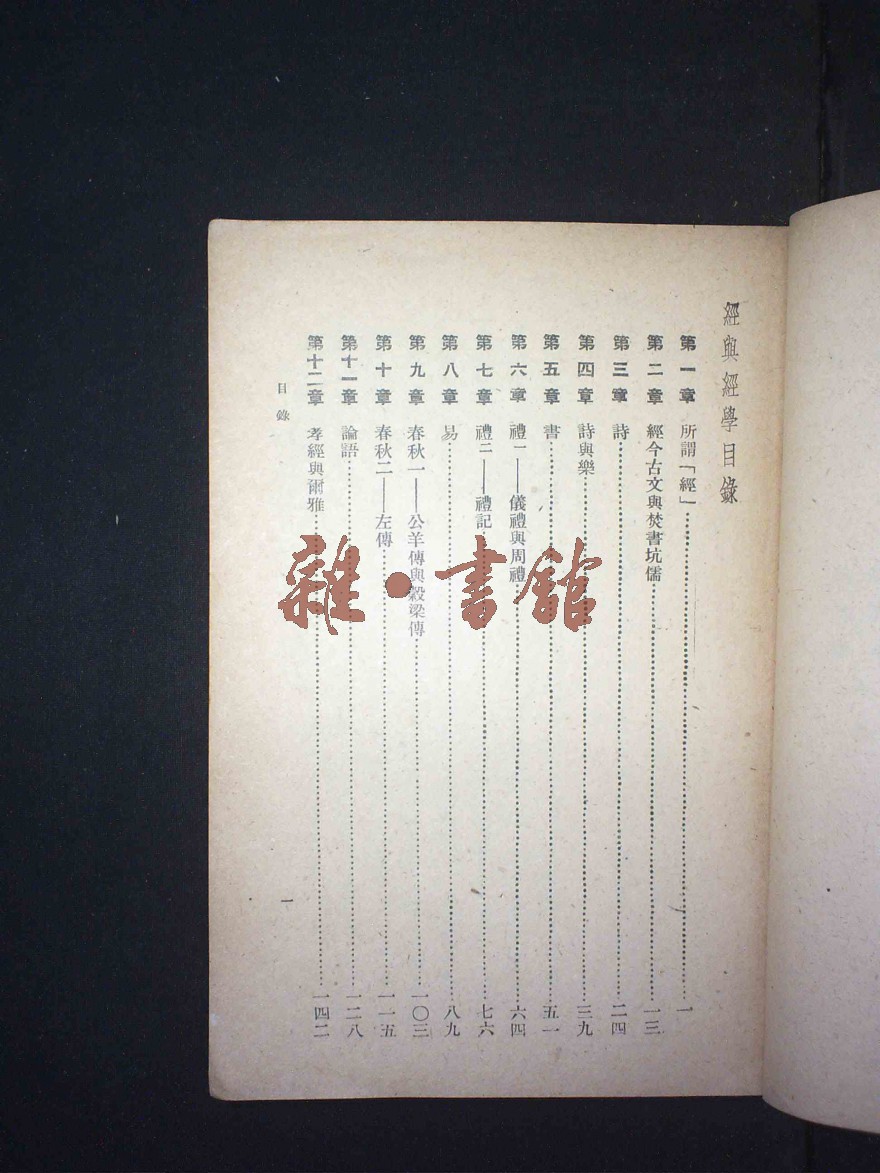 經與經學目錄
第一章 所謂「經」……一
第二章 經今古文與焚書坑儒……一三
第三章 詩……二四
第四章 詩與樂……三九
第五章 書……五一
第六章 禮一——儀禮與周禮……六四
第七章 禮二——禮記……七六
第八章 易……八九
第九章 春秋一——公羊傳與穀梁傳……一〇三
第十章 春秋二——左傳……一一五
第十一章 論語……一二八
第十二章 孝經與爾雅……一四二
目錄
一
雜·書館